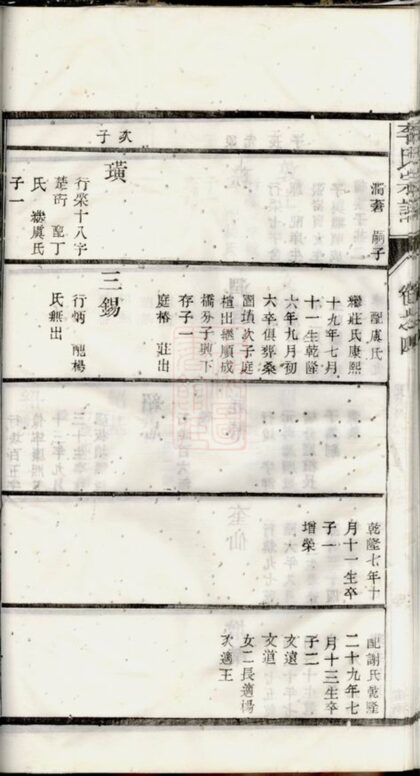 氏宗譜
卷之四
嗣子
次子
璜
行榮十八字
配丁
氏 繼虞氏
子一
配虞氏
繼莊氏康熙
十九年七月
十一生乾隆
六年九月初
六卒俱葬桑
園墳次子庭
楦出繼順成
橋分子興下
存子一
庭椿 莊出
三錫
行炳 配楊
氏無出
乾隆七年十
月十一生卒
子一
增榮
配謝氏乾隆
二十九年七
月十三生卒
子二
文遠
文道
女二長適楊
次適王